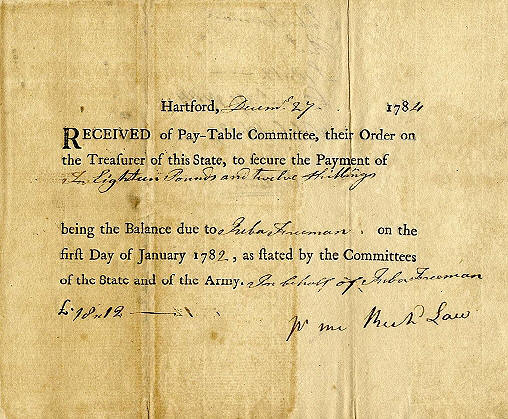 Hartford, Decemr. 27 1784
RECEIVED of Pay-Table Committee, their Order on
the Treaſurer of this State, to ſecure the Payment of
Eighteen Pounds and twelve Shillings
being the Balance due to Juba Freeman. on the
firſt Day of January 1782, as ſtated by the Committees
of the State and of the Army. In behalf of Juba Freeman
£18..12
pr me Richd Law